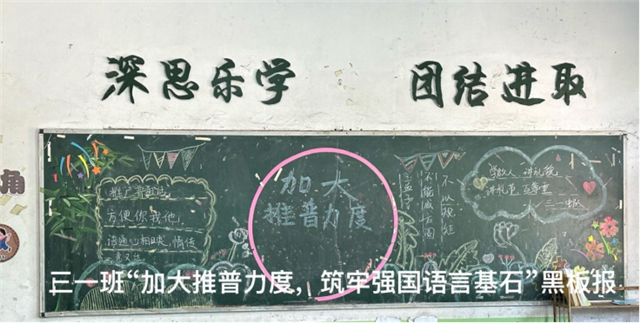 深思乐学
团结进取
角
推广普通话,
方便你我他,
语通心相映,情传
加大
推普力度
不以规矩
不能成方圆
孟子
学做人 讲礼貌
三一中队
三一班“加大推普力度，筑牢强国语言基石”黑板报